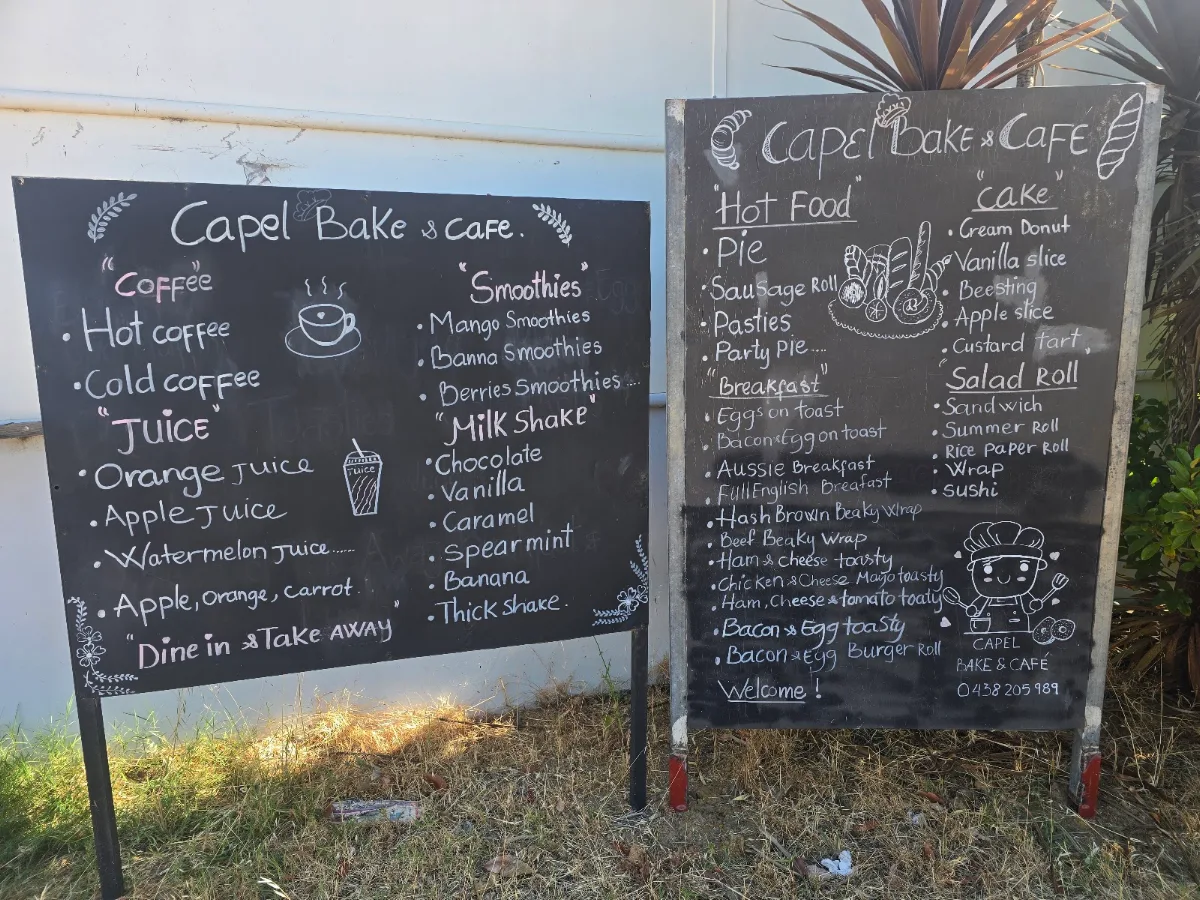 Capel Bake & CAFE.
"Coffee"
• Hot coffee
• Cold coffee
"Juice"
• Orange Juice
JUICE
• Apple Juice
• Watermelon Juice......
• Apple, orange, carrot.
"Dine in & Take AWAY"
"Smoothies"
• Mango Smoothies
• Banna Smoothies
• Berries smoothies....
"Milk Shake"
• Chocolate
• Vanilla
• Caramel
• Spearmint
• Banana
• Thick Shake.
Capel Bake & CAFE
"Hot Food"
• Pie
• Sausage Roll
• Pasties
• Party Pie....
"Breakfast"
• Eggs on toast
• Bacon & Egg on toast
• Aussie Breakfast
• Full English Breafast
• Hash Brown Beaky Wrap
• Beef Beaky Wrap
• Ham & cheese toasty
• Chicken & Cheese Mayo toasty
• Ham, Cheese & tomato toaty
• Bacon & Egg toasty
• Bacon & Egg Burger Roll
Welcome!
"Cake"
• Cream Donut
• Vanilla slice
• Beesting
• Apple slice
• Custard tart
"Salad Roll
• Sandwich
• Summer Roll
• Rice Paper Roll
• Wrap
• Sushi
CAPEL
BAKE & CAFÉ
0438 205 989